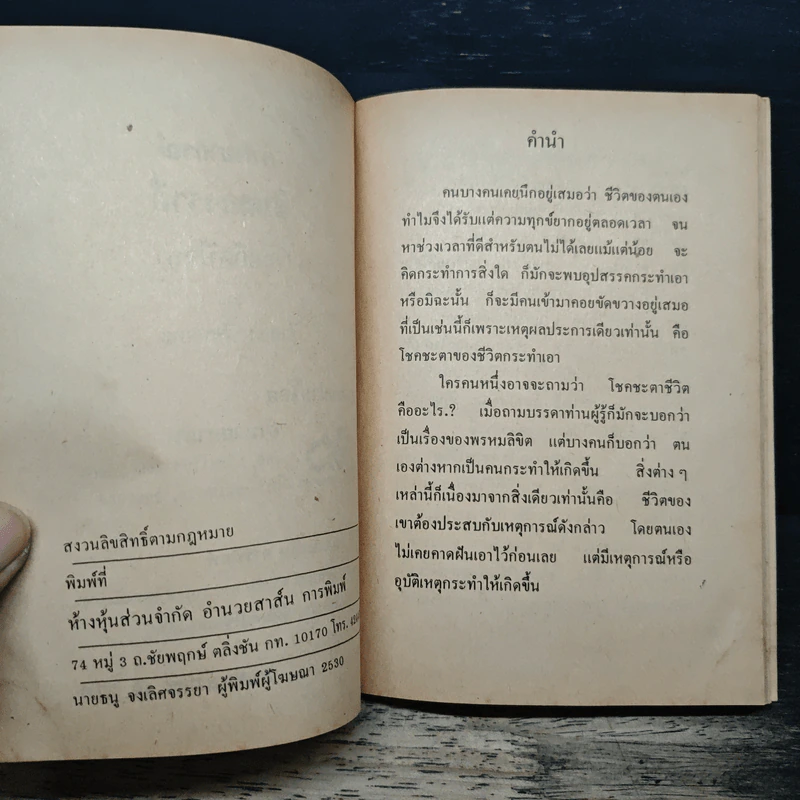 สงวนลิขสิทธิ์ตามกฎหมาย
พิมพ์ที่
ห้างหุ้นส่วนจำกัด อำนวยสาส์น การพิมพ์
74 หมู่ 3 ถ.ชัยพฤกษ์ ตลิ่งชัน กท. 10170 โทร.
นายธนู จงเลิศจรรยา ผู้พิมพ์ผู้โฆษณา 2530
คำนำ
คนบางคนเคยนึกอยู่เสมอว่า ชีวิตของตนเอง
ทำไมจึงได้รับแต่ความทุกข์ยากอยู่ตลอดเวลา จน
หาช่วงเวลาที่ดีสำหรับตนไม่ได้เลยแม้แต่น้อย จะ
คิดกระทำการสิ่งใด ก็มักจะพบอุปสรรคกระทำเอา
หรือมิฉะนั้น ก็จะมีคนเข้ามาคอยขัดขวางอยู่เสมอ
ที่เป็นเช่นนี้ก็เพราะเหตุผลประการเดียวเท่านั้น คือ
โชคชะตาของชีวิตกระทำเอา
ใครคนหนึ่งอาจจะถามว่า โชคชะตาชีวิต
คืออะไร.? เมื่อถามบรรดาท่านผู้รู้ก็มักจะบอกว่า
เป็นเรื่องของพรหมลิขิต แต่บางคนก็บอกว่า ตน
เองต่างหากเป็นคนกระทำให้เกิดขึ้น สิ่งต่าง ๆ
เหล่านี้ก็เนื่องมาจากสิ่งเดียวเท่านั้นคือ ชีวิตของ
เขาต้องประสบกับเหตุการณ์ดังกล่าว โดยตนเอง
ไม่เคยคาดฝันเอาไว้ก่อนเลย แต่มีเหตุการณ์หรือ
อุบัติเหตุกระทำให้เกิดขึ้น